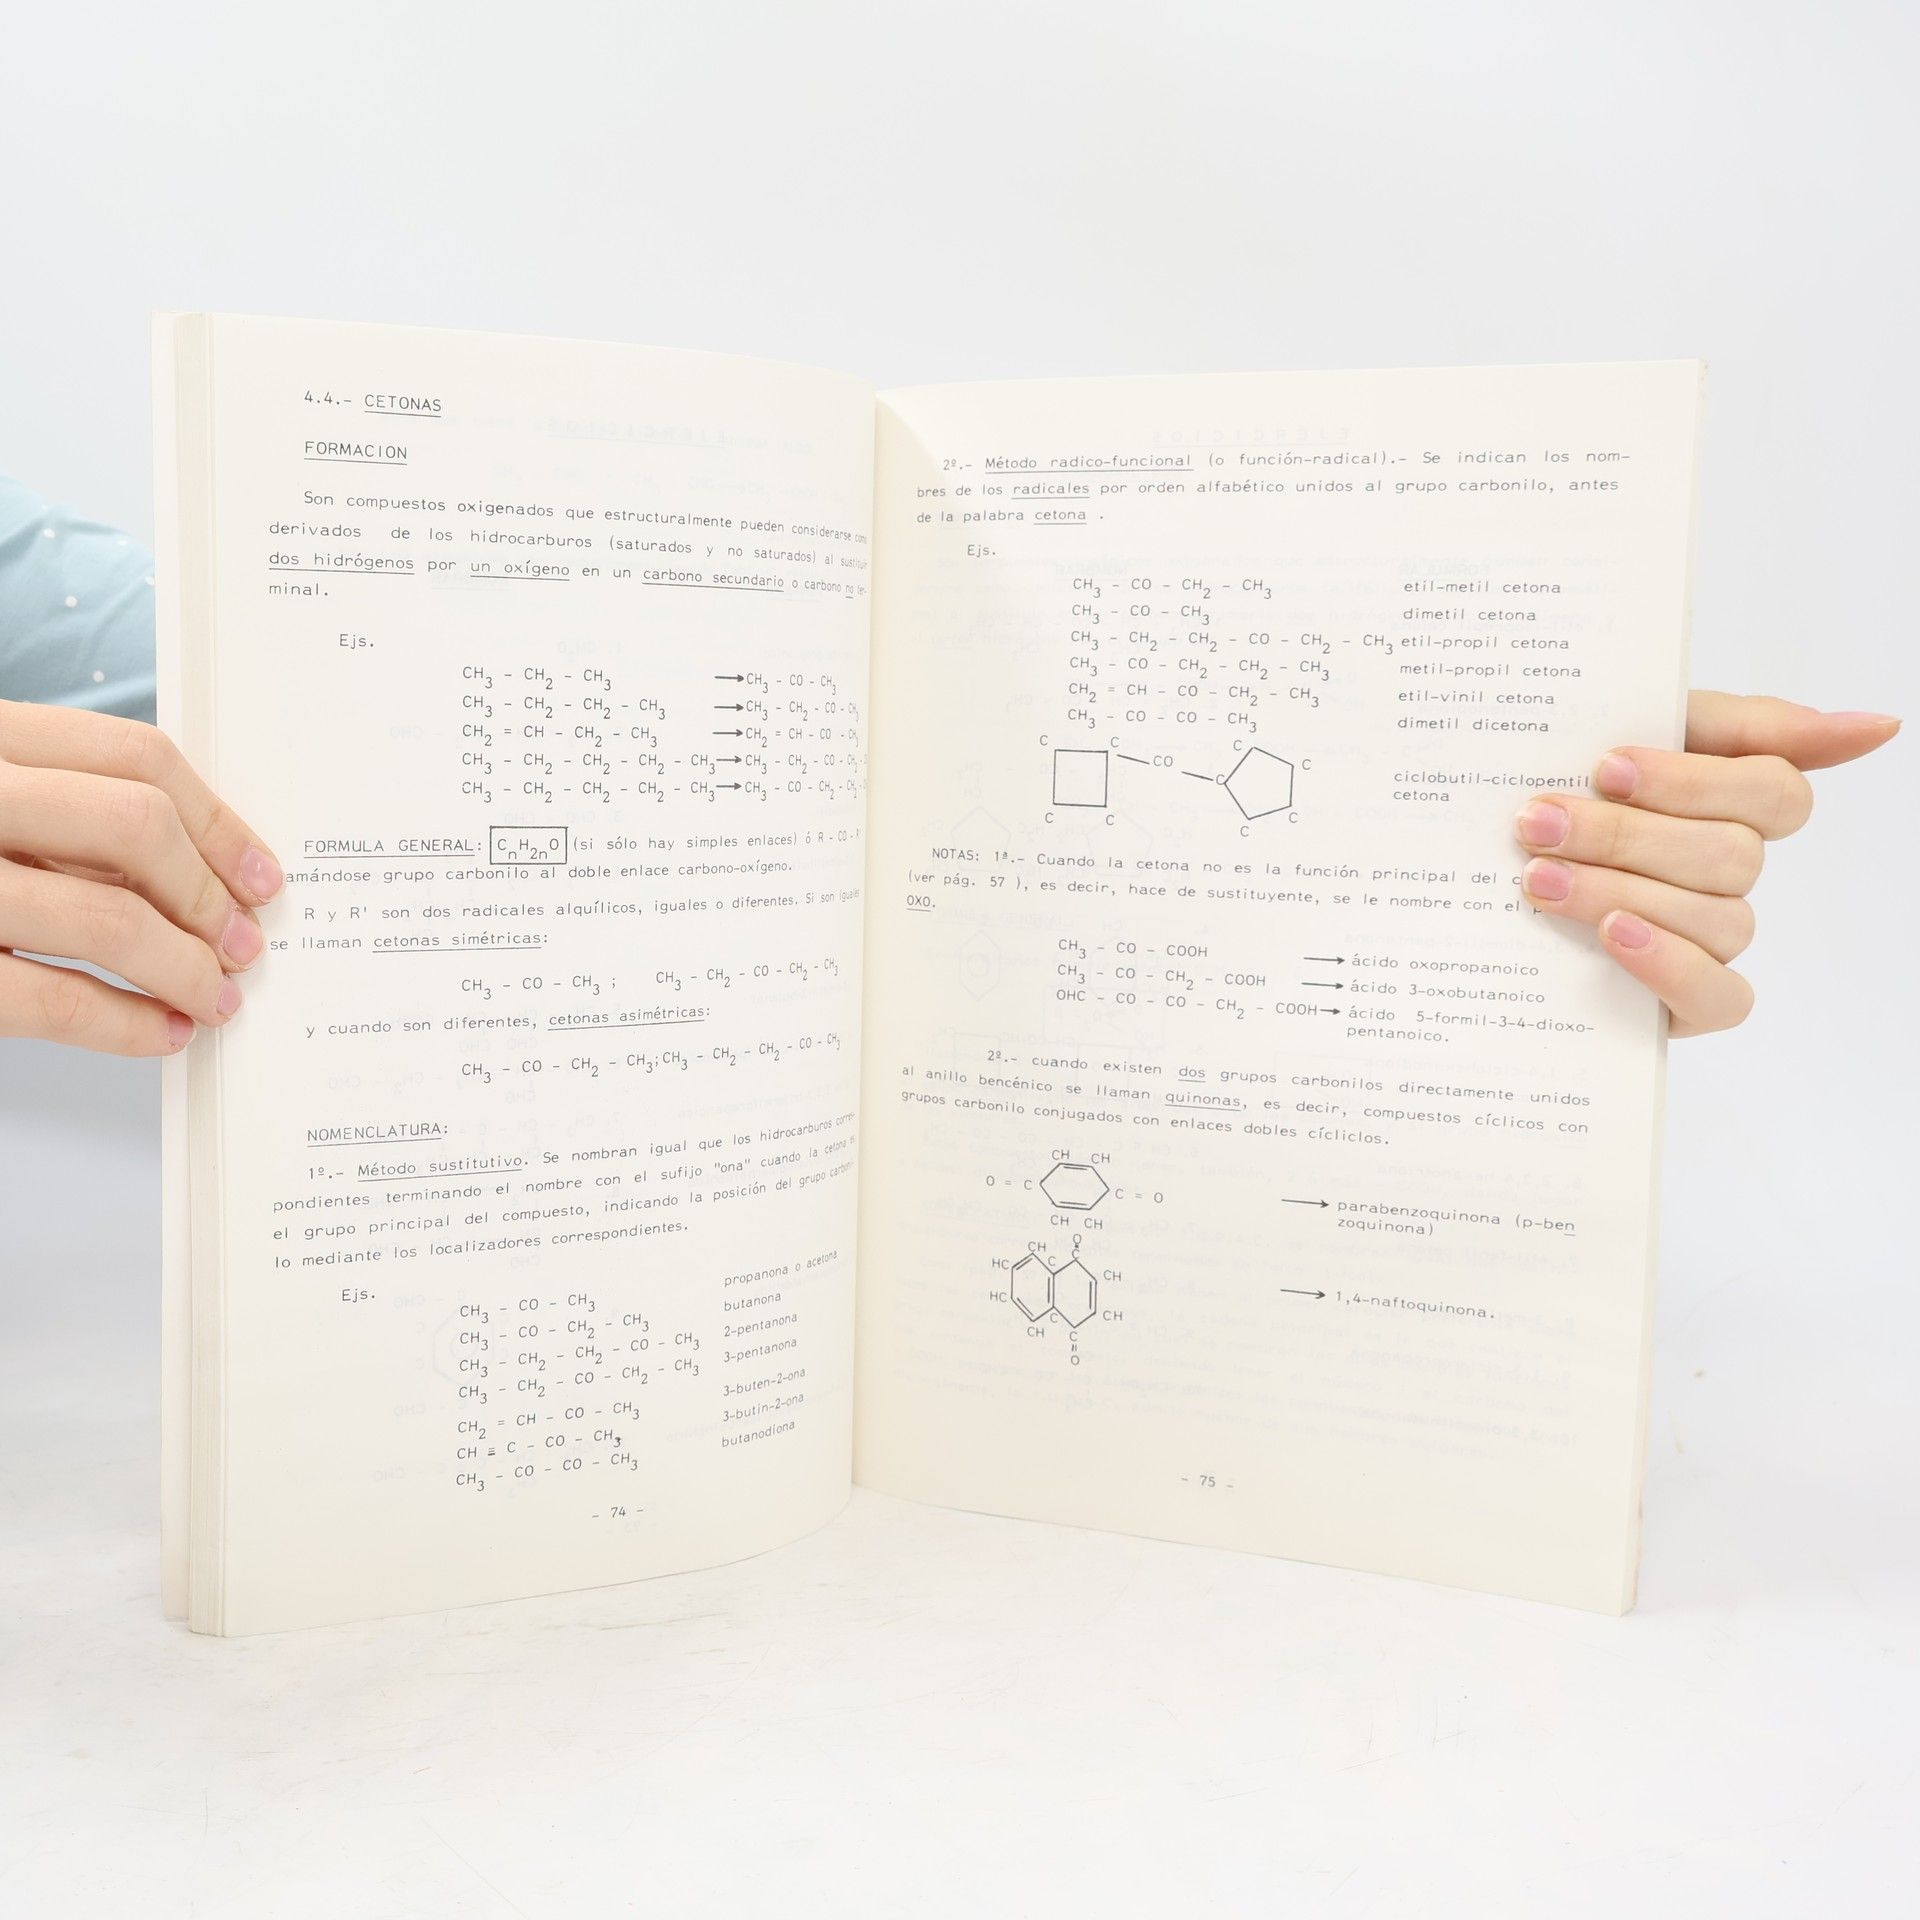 4.4.- CETONAS
FORMACION
Son compuestos oxigenados que estructuralmente pueden considerarse como
derivados de los hidrocarburos (saturados y no saturados) al sustituir
dos hidrógenos por un oxígeno en un carbono secundario o carbono no ter-
minal.
Ejs.
CH3 - CH2 - CH3 → CH3 - CO - CH3
CH3 - CH2 - CH2 - CH3 → CH3 - CH2 - CO - CH3
CH2 = CH - CH2 - CH3 → CH2 = CH - CO - CH3
CH3 - CH2 - CH2 - CH2 - CH3 → CH3 - CH2 - CO - CH2 -
CH3 - CH2 - CH2 - CH2 - CH3 → CH3 - CO - CH2 - CH2 -
FORMULA GENERAL: CnH2nO (si sólo hay simples enlaces) ó R - CO - R'
amándose grupo carbonilo al doble enlace carbono-oxígeno.
R y R' son dos radicales alquílicos, iguales o diferentes. Si son iguales
se llaman cetonas simétricas:
CH3 - CO - CH3 ; CH3 - CH2 - CO - CH2 - CH3
y cuando son diferentes, cetonas asimétricas:
CH3 - CO - CH2 - CH3; CH3 - CH2 - CH2 - CO - CH3
NOMENCLATURA:
1º.- Método sustitutivo. Se nombran igual que los hidrocarburos corres-
pondientes terminando el nombre con el sufijo "ona" cuando la cetona es
el grupo principal del compuesto, indicando la posición del grupo carboni-
lo mediante los localizadores correspondientes.
Ejs.
CH3 - CO - CH3 propanona o acetona
CH3 - CO - CH2 - CH3 butanona
CH3 - CH2 - CH2 - CO - CH3 2-pentanona
CH3 - CH2 - CO - CH2 - CH3 3-pentanona
CH2 = CH - CO - CH3 3-buten-2-ona
CH ≡ C - CO - CH3 3-butin-2-ona
CH3 - CO - CO - CH3 butanodiona
- 74 -
2º.- Método radico-funcional (o función-radical).- Se indican los nom-
bres de los radicales por orden alfabético unidos al grupo carbonilo, antes
de la palabra cetona .
Ejs.
CH3 - CO - CH2 - CH3 etil-metil cetona
CH3 - CO - CH3 dimetil cetona
CH3 - CH2 - CH2 - CO - CH2 - CH3 etil-propil cetona
CH3 - CO - CH2 - CH2 - CH3 metil-propil cetona
CH2 = CH - CO - CH2 - CH3 etil-vinil cetona
CH3 - CO - CO - CH3 dimetil dicetona
C C C
CO C
C ciclobutil-ciclopentil
cetona
C C C C
NOTAS: 1ª.- Cuando la cetona no es la función principal del c
(ver pág. 57 ), es decir, hace de sustituyente, se le nombre con el p
oxo.
CH3 - CO - COOH → ácido oxopropanoico
CH3 - CO - CH2 - COOH → ácido 3-oxobutanoico
OHC - CO - CO - CH2 - COOH → ácido 5-formil-3-4-dioxo-
pentanoico.
2º.- cuando existen dos grupos carbonilos directamente unidos
al anillo bencénico se llaman quinonas, es decir, compuestos cíclicos con
grupos carbonilo conjugados con enlaces dobles cícliclos.
CH CH
O = C C = O → parabenzoquinona (p-ben
zoquinona)
CH CH
O
CH C
HC C CH
HC CH → 1,4-naftoquinona.
C
CH C
O
- 75 -